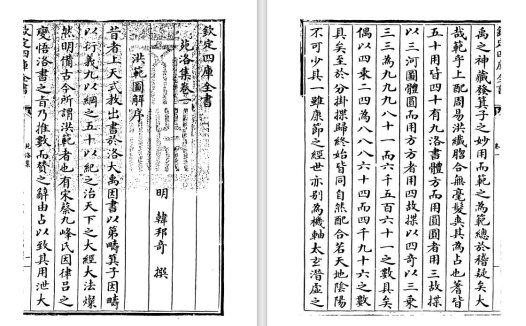 欽定四庫全書
苑洛集卷一
明 韓邦奇 撰
洪範圖解序
昔者上天式教出書於洛大禹因書以第疇箕子因疇
以衍義九以綱之五十以紀之治天下之大經大法燦
然明備古今所謂洪範者也有宋蔡九峰氏因律呂之
變悟洛書之旨乃推數而贊之辭由占以致其用洩大
欽定四庫全書
苑洛集
欽定四庫全書
卷一
禹之神藏發箕子之妙用而範之為範總於稽疑矣大
哉範乎上配周易洪纖脗合無毫髮爽其為占也蓍皆
五十用皆四十有九洛書體方而用圓圓者用三故揲
以三河圖體圓而用方方者用四故揲以四奇以三乘
三三為九九九八十一而六千五百六十一之數具矣
偶以四乘二四為八八八六十四而四千九十六之數
具矣至於分掛揲歸終始皆同自然配合若天地陰陽
不可少其一雖康節之經世亦别為機軸太玄潛虛之